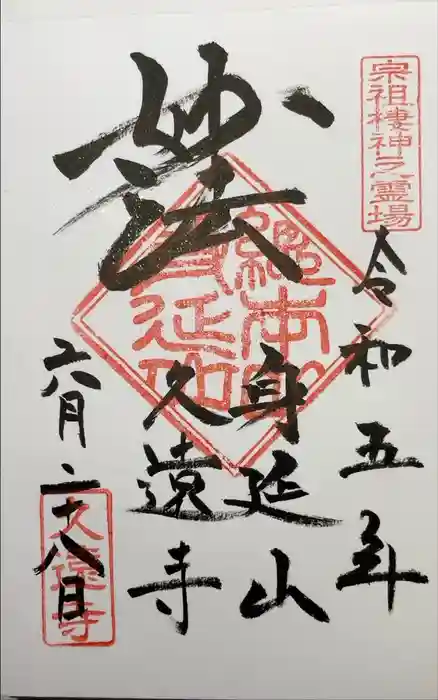 宗祖棲神之霊場
令和五年
身延山
妙法
久遠寺
六月二十八日
總本山
身延山
久遠寺